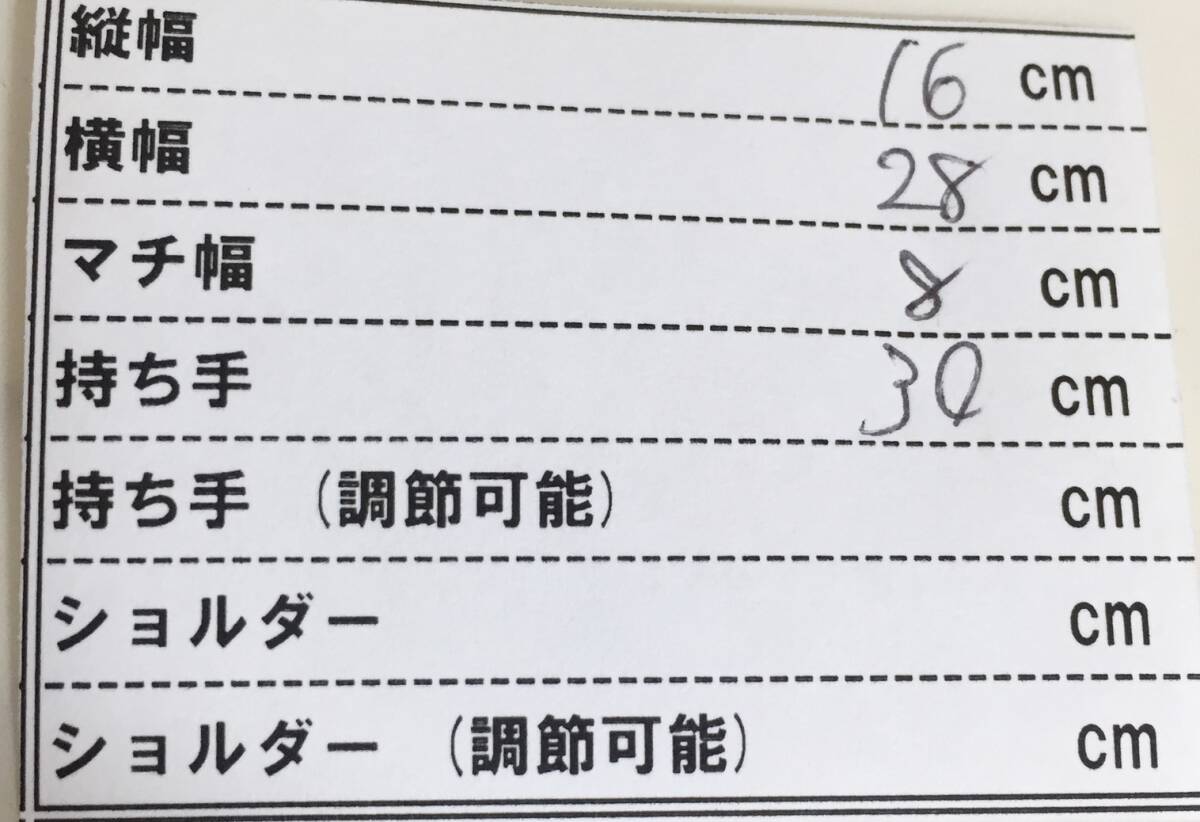 縦幅 16 cm
横幅 28 cm
マチ幅 8 cm
持ち手 30 cm
持ち手 (調節可能) cm
ショルダー cm
ショルダー (調節可能) cm